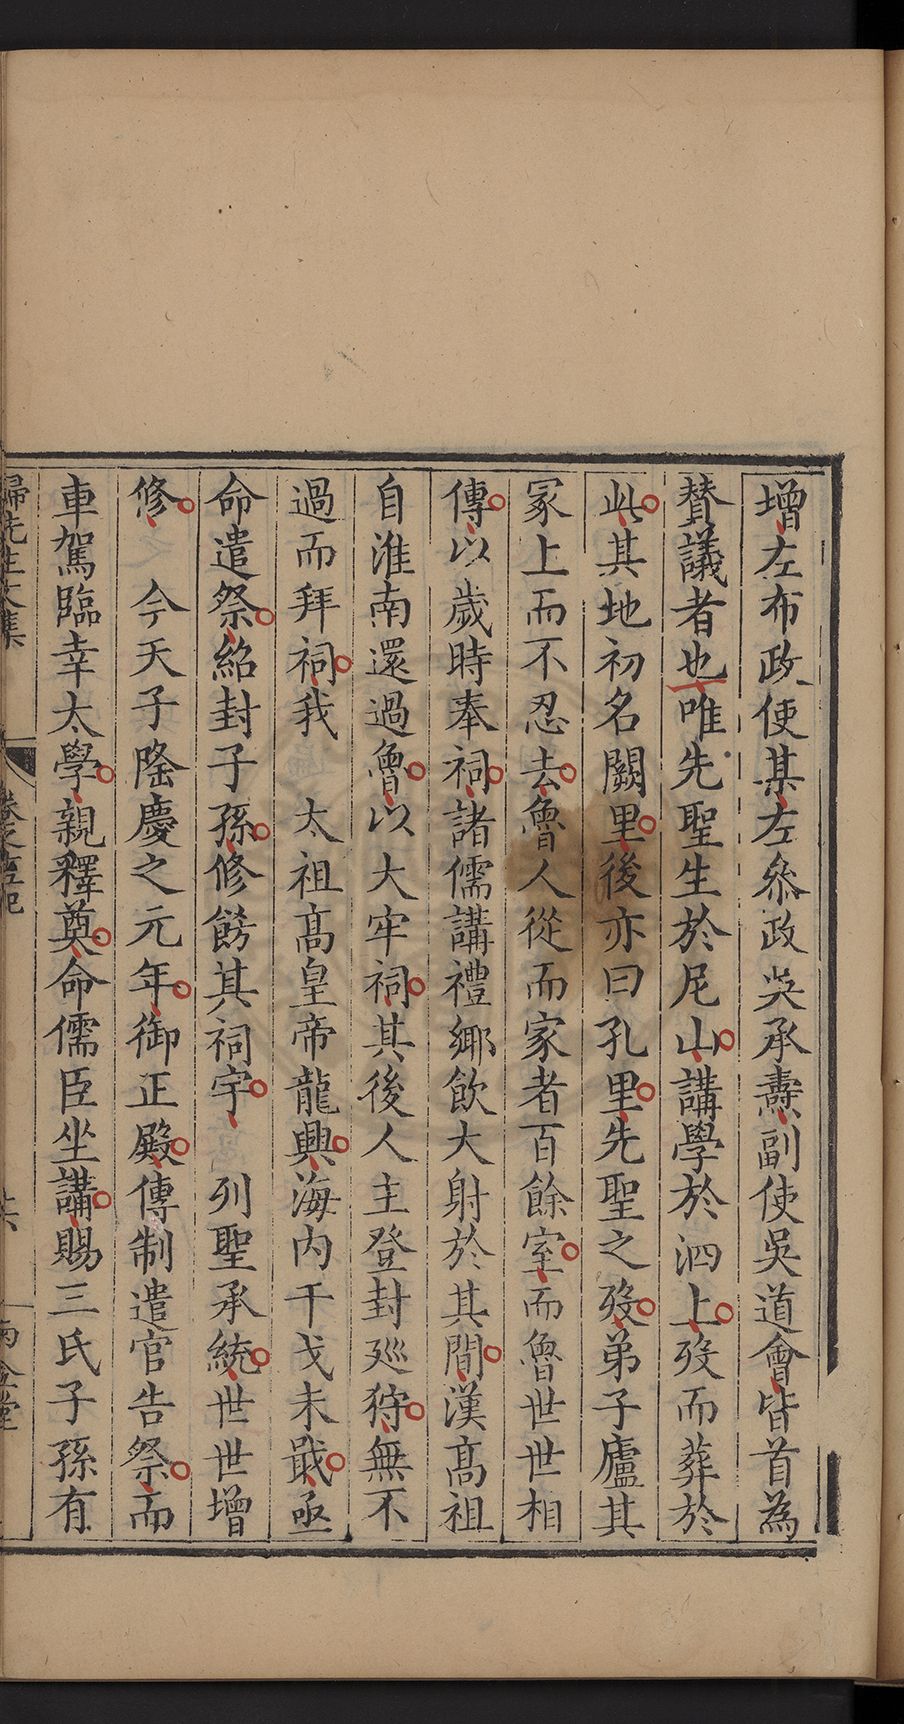 增左布政使某左叅政吳承燾副使吳道會皆首為
賛議者也唯先聖生於尼山講學於泗上歿而葬於
此其地初名闕里後亦曰孔里先聖之歿弟子廬其
冢上而不忍去魯人從而家者百餘室而魯世世相
傳以歲時奉祠諸儒講禮鄉飲大射於其間漢高祖
自淮南還過魯以大牢祠其後人主登封廵狩無不
過而拜祠我 太祖高皇帝龍興海內干戈未戢亟
命遣祭紹封子孫修餝其祠宇 列聖承統世世增
修 今天子隆慶之元年御正殿傳制遣官告祭而
車駕臨幸太學親釋奠命儒臣坐講賜三氏子孫有
歸先生文集 卷之五記 六 雨金堂